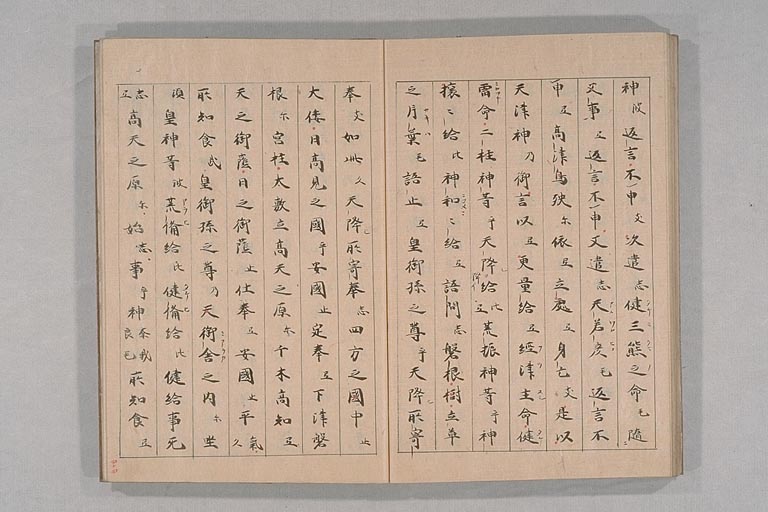 神波返言不申支次遣志健三熊之命毛隨
父事弖返言不申又遣志天若彦毛返言不
申弖高津鳥殃尓依弖立處弖身亡支是以
天津神乃御言以弖更量給弖經津主命健
雷命二柱神等乎天降給比弖荒振神等乎神
攘〻給比神和〻給弖語問志磐根樹立草
之片葉毛語止弖皇御孫之尊乎天降所寄
奉支如此久天降所寄奉志四方之國中止
大倭日高見之國乎安國止定奉弖下津磐
根尓宮柱太敷立高天之原尓千木高知弖
天之御蔭日之御蔭止仕奉弖安國止平氣久
所知食武皇御孫之尊乃天御舍之内尓坐
須皇神等波荒備給比健備給比健給事无
志弖高天之原尓始志事乎神奈我良毛所知食弖